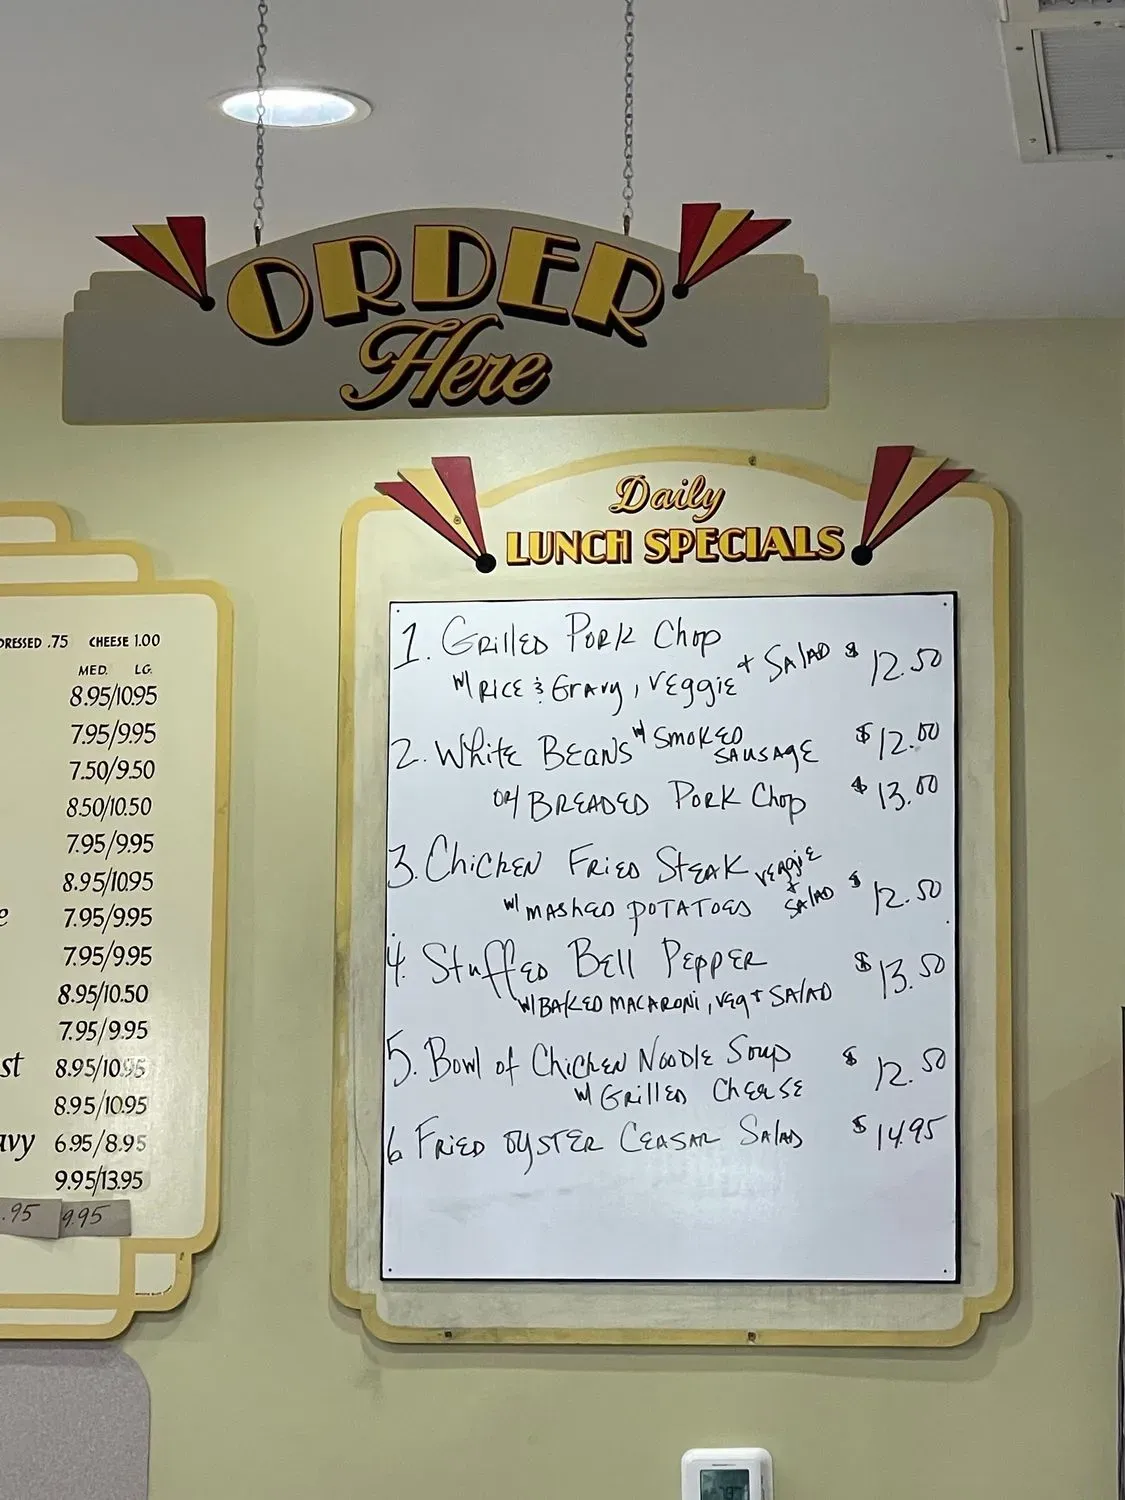 ORDER
Here
Daily
LUNCH SPECIALS
1. GRILLED PORK CHOP
W/ RICE & GRAVY, VEGGIE + SALAD $ 12.50
2. WHITE BEANS W/ SMOKED SAUSAGE $12.00
OR/ BREADED PORK CHOP $ 13.00
3. CHICKEN FRIED STEAK VEGGIE
W/ MASHED POTATOES + SALAD $ 12.50
4. STUFFED BELL PEPPER $ 13.50
W/ BAKED MACARONI, VEG + SALAD
5. BOWL OF CHICKEN NOODLE SOUP $ 12.50
W/ GRILLED CHEESE
6 FRIED OYSTER CEASAR SALAD $ 14.95
DRESSED .75 CHEESE 1.00
MED. LG.
8.95/10.95
7.95/9.95
7.50/9.50
8.50/10.50
7.95/9.95
8.95/10.95
7.95/9.95
7.95/9.95
8.95/10.50
7.95/9.95
st 8.95/10.95
8.95/10.95
avy 6.95/8.95
9.95/13.95
.95 9.95